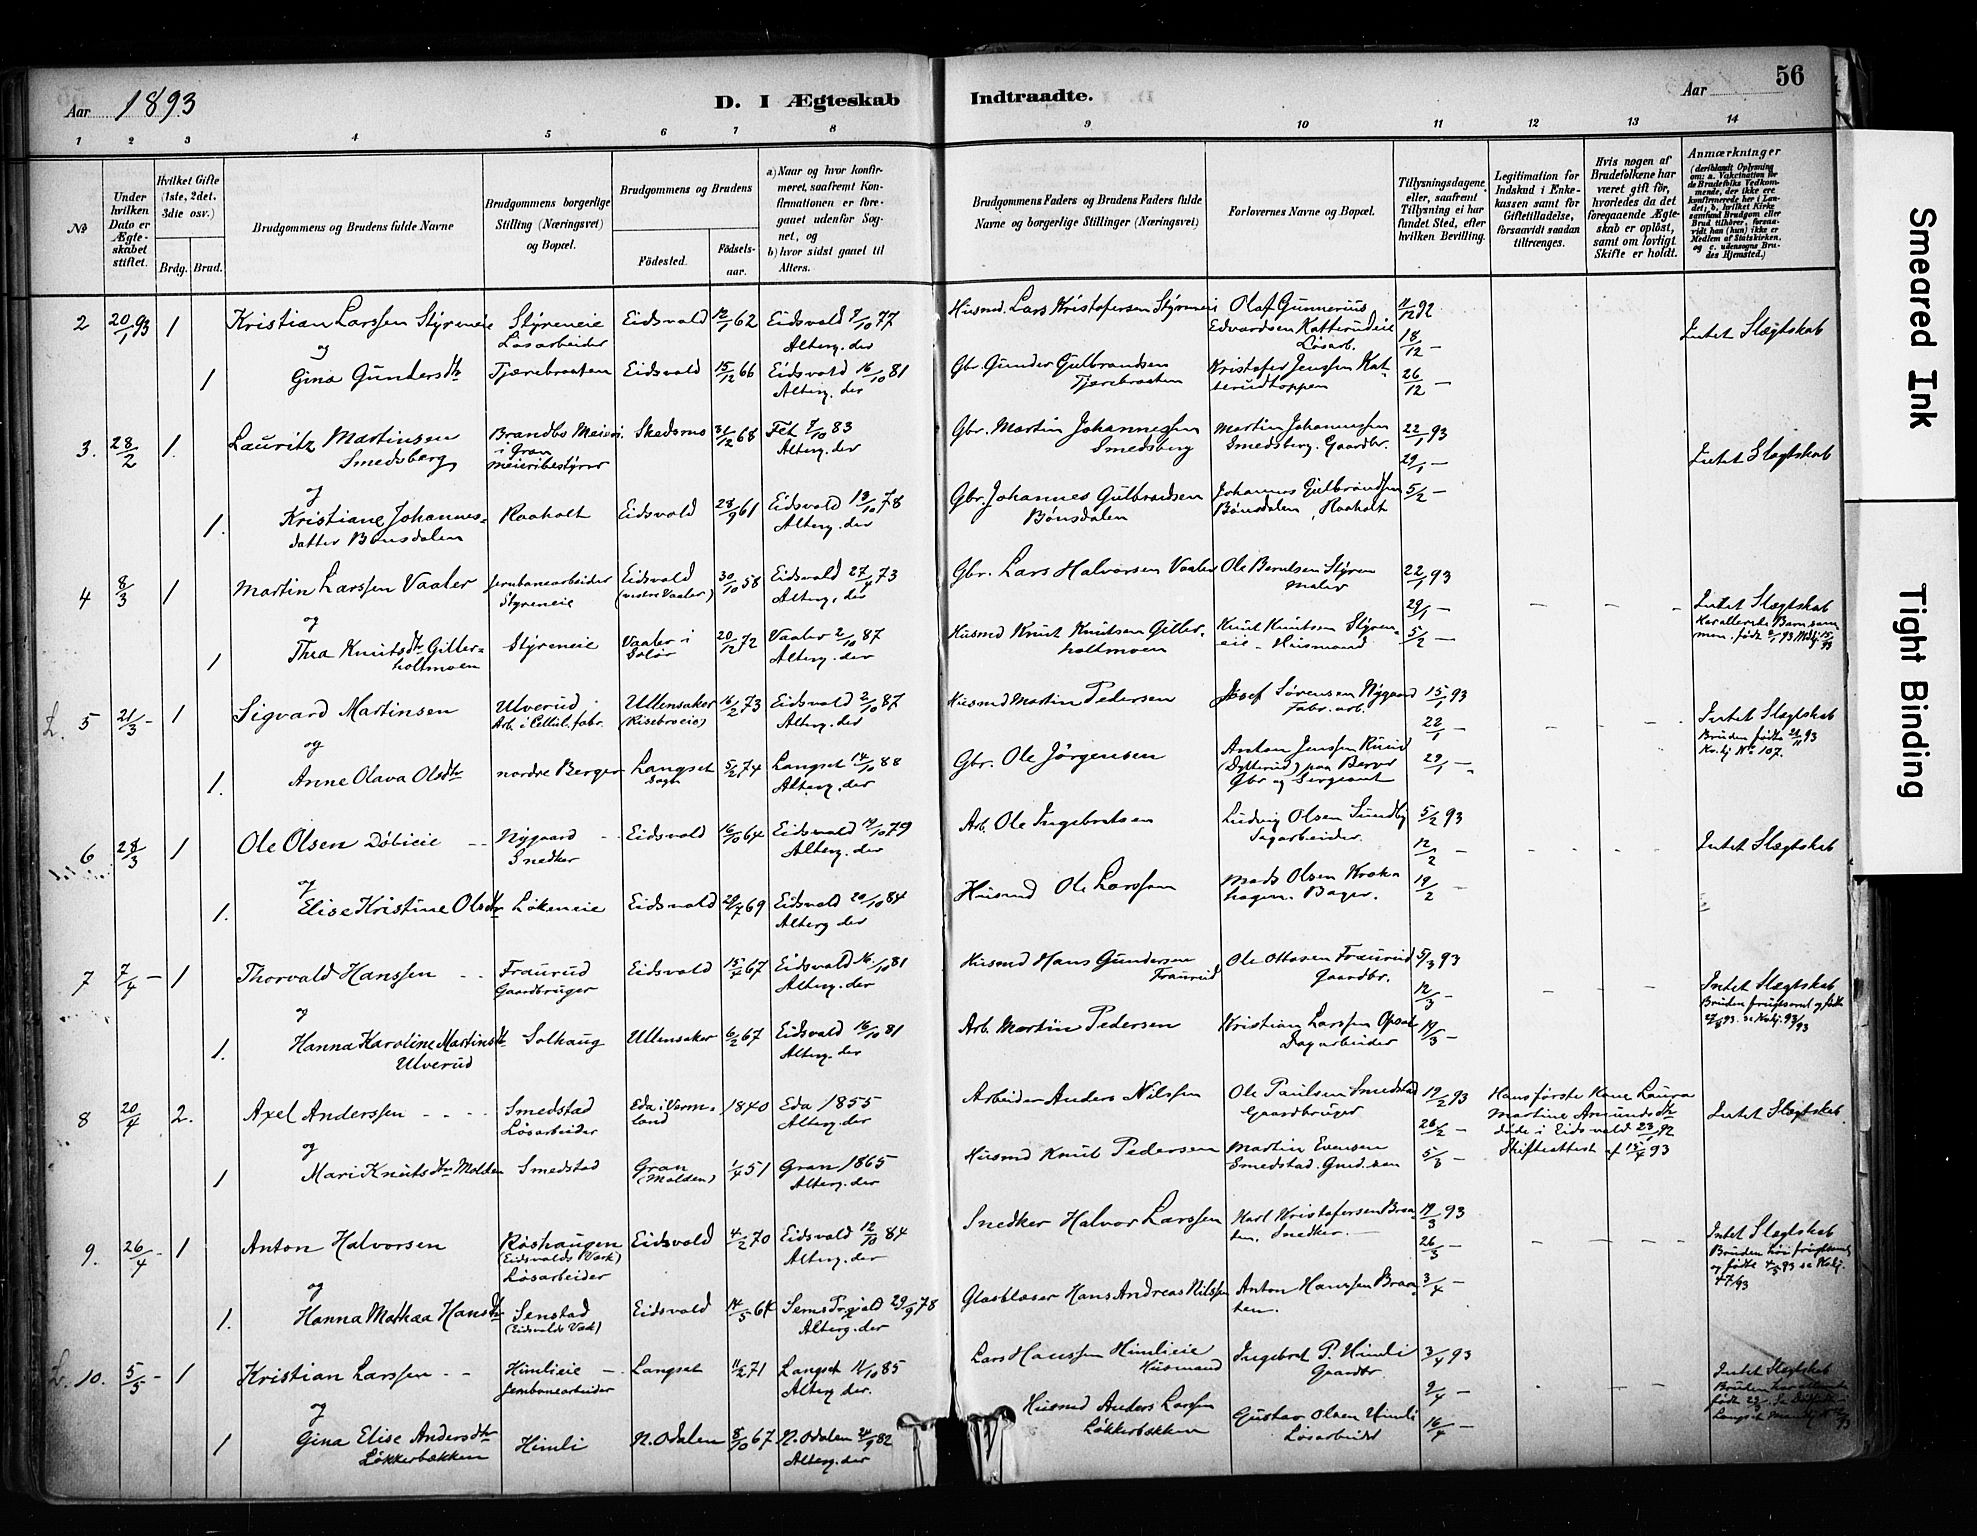 Aar 1893
D. I Ægteskab Indtraadte.
Aar
56
1 2 3 4 5 6 7 8 9 10 11 12 13 14
No
Under hvilken Dato er Ægteskabet stiftet.
Hvilket Gifte (1ste, 2det, 3die osv.)
Brdg. Brud.
Brudgommens og Brudens fulde Navne
Brudgommens borgerlige Stilling (Næringsvei) og Bopæl.
Brudgommens og Brudens
Födested.
Födsels-aar.
a) Naar og hvor konfirmeret, saafremt Konfirmationen er foregaaet udenfor Sognet, og
b) hvor sidst gaaet til Alters.
Brudgommens Faders og Brudens Faders fulde Navne og borgerlige Stillinger (Næringsvei)
Forlovernes Navne og Bopæl.
Tillysningsdagene, eller, saafremt Tillysning ei har fundet Sted, efter hvilken Bevilling.
Legitimation for Indskud i Enkekassen samt for Giftetilladelse, forsaavidt saadan tiltrænges.
Hvis nogen af Brudefolkene har været gift för, hvorledes da det foregaaende Ægteskab er oplöst, samt om lovligt Skifte er holdt.
Anmærkninger
Smeared Ink
Tight Binding
2 20/1 93 1 Kristian Larssen Styreneie Styreneie Løsarbeider Eidsvold 12/1 62 Eidsvold 7/10 77 Alterg. der Husmd. Lars Kristofersen Styreneie Olaf Gunnerius Edvardsen Katterudeie Løsarb. 11/12 92 18/12 — Intet Slægtskab
og
1 Gina Gundersdtr Tjærebraaten Eidsvold 15/12 66 Eidsvold 16/10 81 Alterg. der Gbr. Gunder Gulbrandsen Tjærebraaten Kristofer Jenssen Katterudtoppen 26/12 —
3. 28/2 1. Lauritz Martinsen Smedsberg Brandbo Meieri i Gran Meieribestyrer Skedsmo 31/12 68 Fet 7/10 83 Alterg. der Gbr. Martin Johannessen Smedsberg Martin Johannessen Smedsberg. Gaardbr. 22/1 93 29/1 — Intet Slægtskab
og
1. Kristiane Johannesdatter Bønsdalen Raaholt Eidsvold 28/9 61 Eidsvold 13/10 78 Alterg. der Gbr. Johannes Gulbrandsen Bønsdalen Johannes Gulbrandsen Bønsdalen, Raaholt 5/2 —
4 8/3 1 Martin Larssen Vaaler Jernbanearbeider Styreneie Eidsvold 30/10 58 Eidsvold 27/4 73 Alterg. der Gbr. Lars Halvorsen Vaaler Ole Berntsen Styren Maler 22/1 93 29/1 — Intet Slægtskab
og
1 Thea Knutsdtr Gitterholtmoen Styreneie Vaaler i Solør 20/12 72 Vaaler 2/10 87 Alterg. der Husmd Knut Knutsen Gitterholtmoen Knut Knutsen Styreneie - Husmand 5/2 —
L. 5 21/3 - 1 Sigvard Martinsen Ulverud Arb. i Cellul. fabr. Ullensaker (Risebroeie) 16/2 73 Eidsvold 2/10 87 Alterg. der Husmd Martin Pedersen Josef Sørensen Nygaard Fabr. arb. 15/1 93 22/1 — Intet Slægtskab
og
1. Anne Olava Olsdtr nordre Berger Langset Sogn 5/2 74 Langset 14/10 88 Alterg. der Gbr. Ole Jörgensen Anton Jenssen Ruud (Dytterud) paa Berger Gbr og Sergeant 29/1 — No 107.
6 28/3 1 Ole Olsen Döbieie Nygaard Snedker Eidsvold 16/10 64 Eidsvold 19/10 79 Alterg. der Arb. Ole Ingebretsen Ludvig Olsen Sundby Dagarbeider. 5/2 93 12/2 — Intet Slægtskab
og
1. Elise Kristine Olsdtr Løkeneie Eidsvold 29/7 69 Eidsvold 20/10 84 Alterg der Husmd Ole Larssen Mads Olsen Krokhagen. Bager. 19/2 —
7 7/4 — 1 Thorvald Hanssen Fraurud Gaardbruger Eidsvold 15/4 67 Eidsvold 16/10 81 Alterg. der Husmd Hans Gundersen Fraurud Ole Ottosen Fraurud Gaardbr. 5/3 93 12/3 — Intet Slægtskab
og
1. Hanna Karoline Martinsdtr Ulverud Solhaug Ullensaker 6/2 67 Eidsvold 16/10 81 Alterg. der Arb. Martin Pedersen Kristian Larssen Opsal Dagarbeider 19/3 —
8 20/4 2. Axel Anderssen Smedstad Løsarbeider Eda i Vermland 1840 Eda 1855 Alterg. der Arbeider Anders Nilssen Ole Paulsen Smedstad Gaardbruger 19/2 93 26/2 — Hans første Kone Laura Martine Amundsdtr døde i Eidsvold 23/1 92 Skifteattest af 15/4 93 Intet Slægtskab
og
1 Mari Knutsdtr Molden Smedstad Gran (Molden) 1/4 51 Gran 1865 Alterg. der Husmd Knut Pedersen Martin Evensen Smedstad. 5/3 —
9. 26/4 - 1 Anton Halvorsen Röshaugen (Eidsvolds Værk) Løsarbeider Eidsvold 4/2 70 Eidsvold 12/10 84 Alterg. der Snedker Halvor Larssen Karl Kristofersen Braaten, Snedker. 19/3 93 26/3 — Intet Slægtskab
og
1. Hanna Mathea Hansdtr Senstad (Eidsvolds Værk) Eidsvold 14/5 64 29/9 78 Alterg. der Glasblaser Hans Andreas Nilssen Anton Hanssen Braaten. 3/4 —
L. 10. 5/5 - 1 Kristian Larssen Himlieie Jernbanearbeider Langset 11/2 71 Langset 11/10 85 Alterg der. Lars Hanssen Himlieie Husmand Ingebret P. Himli Gaardbr 3/4 93 9/4 — Intet Slægtskab
og
1 Gina Elise Andersdtr Løkkerbakken Himli N. Odalen 8/10 67 N. Odalen 24/9 82 Alterg. der Husmd Anders Larssen Løkkerbakken Gustav Olsen Himli Løsarbeider 16/4 —